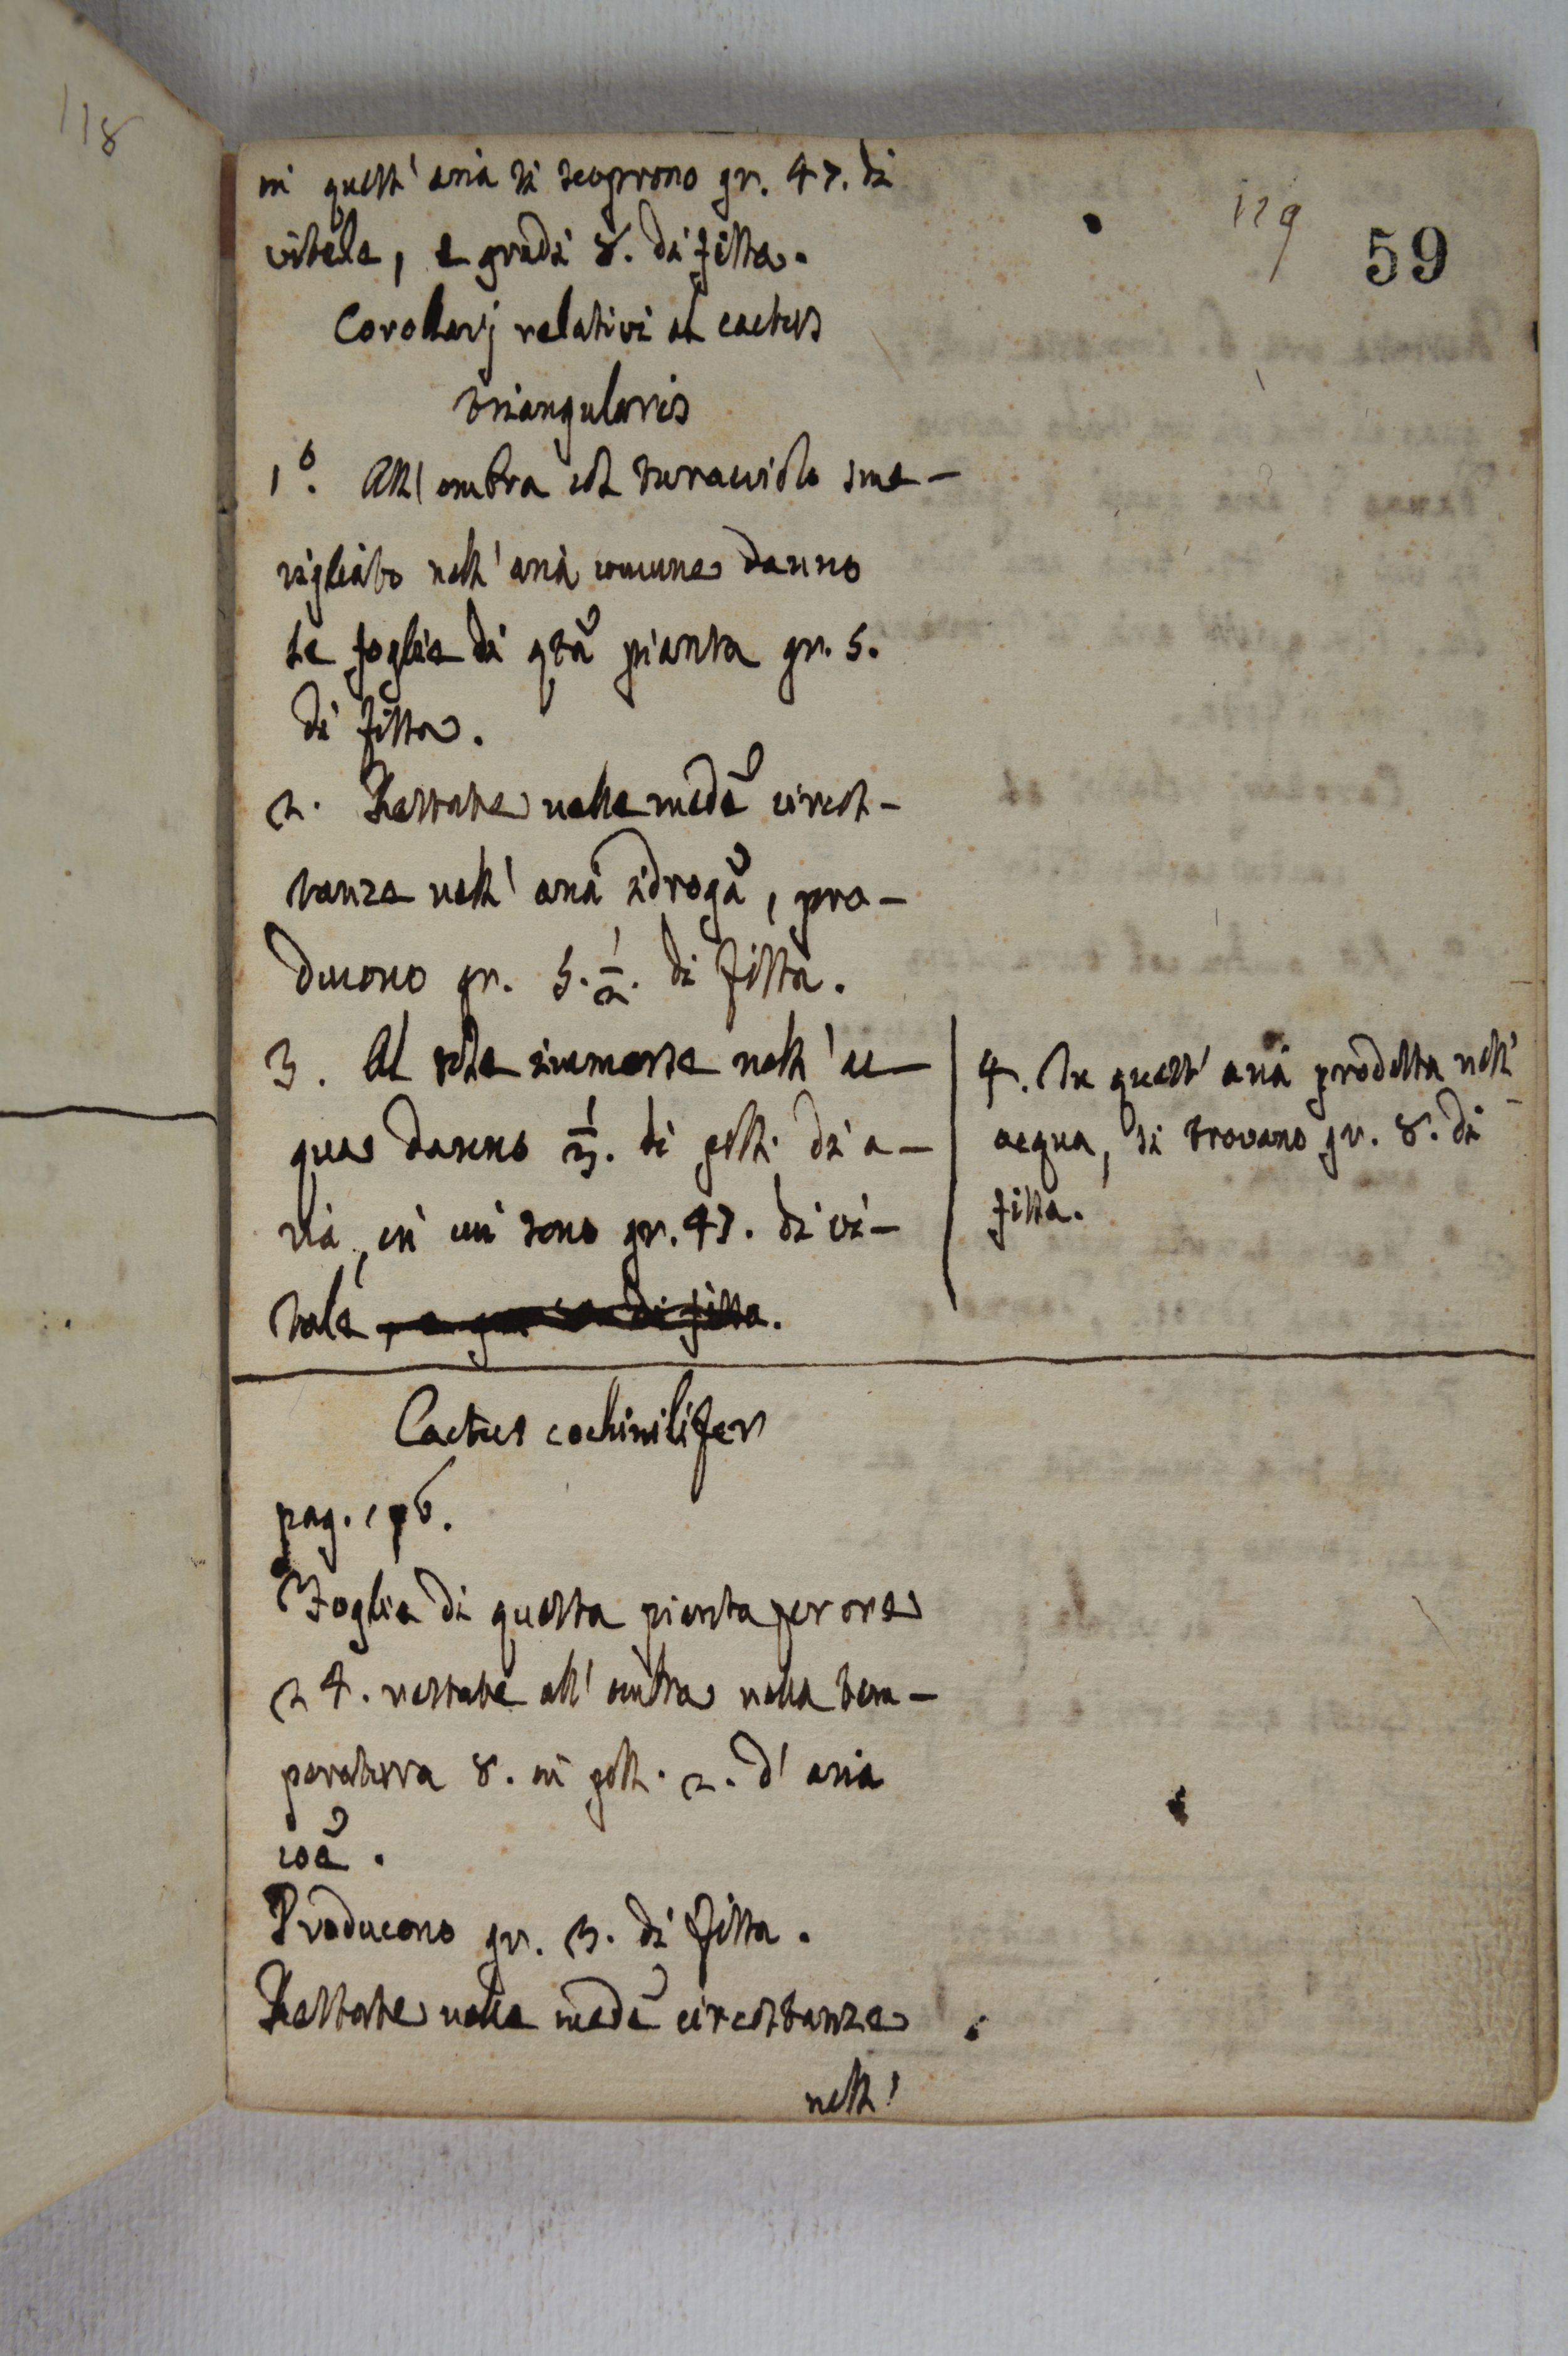 118
119
59
in quest' aria si scoprono gr. 47. di
vitale, e gradi 8. di fissa.
Corollarj relativi al cactus
triangularis
1°. All'ombra col turacciolo sme-
rigliato nell'aria comune danno
le foglie di qta pianta gr. 5.
di fissa.
2. Restate nelle mede circos-
tanze nell'aria idroga, pro-
ducono gr. 5. 1/2. di fissa.
3. Al sole immerse nell'ac-
qua danno 1/3. di poll. di a-
ria, in cui sono gr. 47. di vi-
tale, e gr. 8 di fissa.
4. In quest' aria prodotta nell'
acqua, si trovano gr. 8. di
fissa.
Cactus cochinilifer
pag. 196.
Foglie di questa pianta per ore
24. restate all'ombra nella tem-
peratura 8. in poll. 2. d'aria
coe.
Producono gr. 3. di fissa.
Restate nelle mede circostanze
nell'